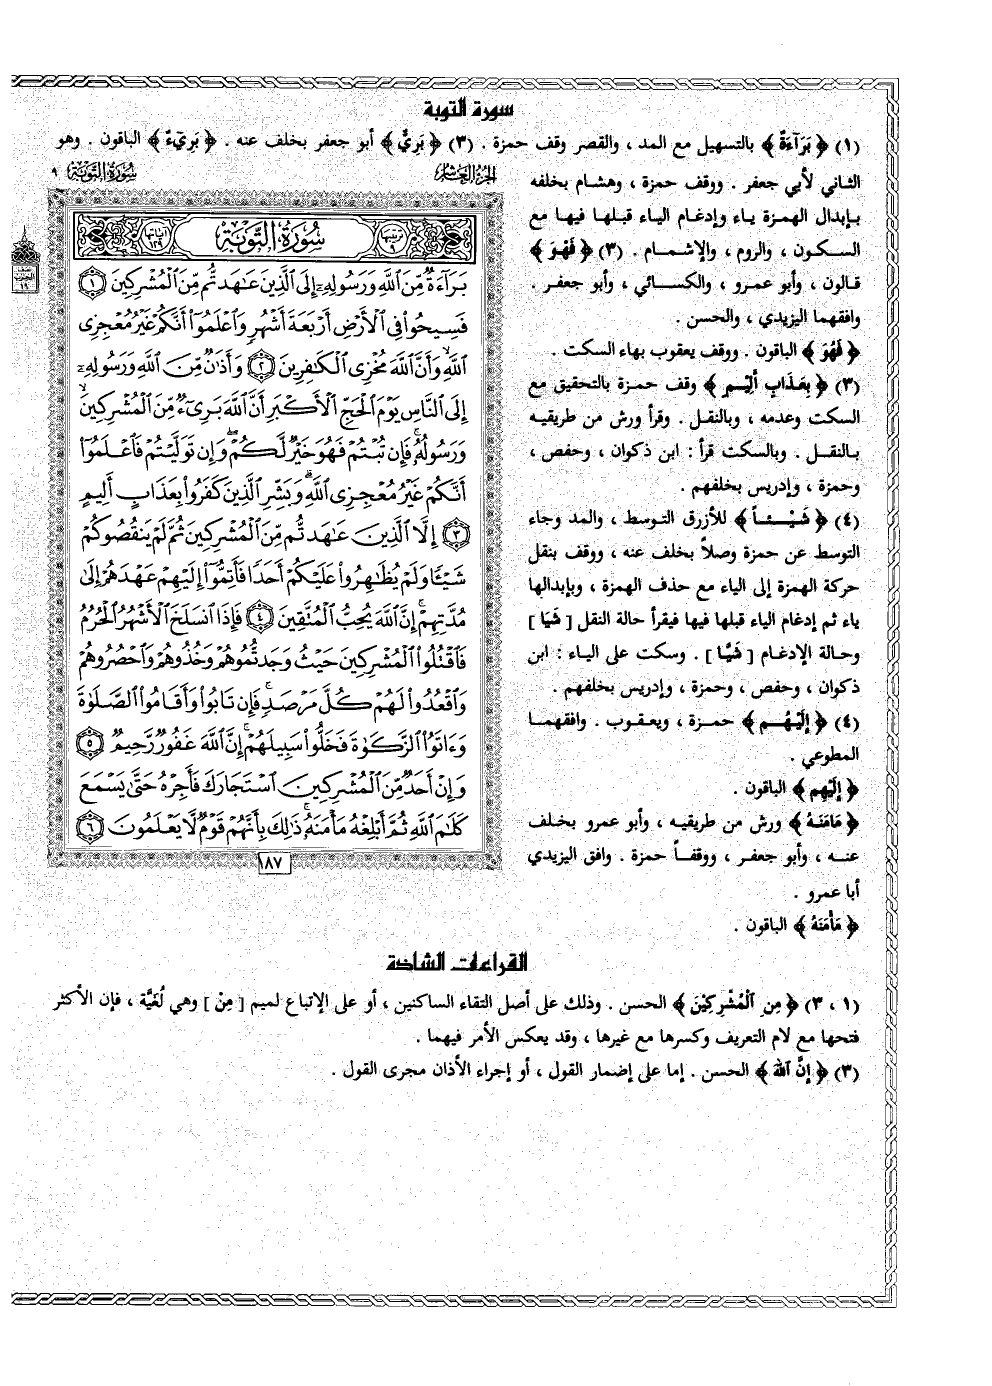 سورة التوبة
(١) ﴿ بَرَآءَةٌ ﴾ بالتسهيل مع المد ، والقصر وقف حمزة . (٣) ﴿ بَرِيٌّ ﴾ أبو جعفر بخلف عنه . ﴿ بَرِيٓءٌ ﴾ الباقون . وهو
الثاني لأبي جعفر . ووقف حمزة ، وهشام بخلفه
بإبدال الهمزة ياء وإدغام الياء قبلها فيها مع
السكون ، والروم ، والإشمام . (٣) ﴿ فَهْوَ ﴾
قالون ، وأبو عمرو ، والكسائي ، وأبو جعفر .
وافقهما اليزيدي ، والحسن .
﴿ فَهُوَ ﴾ الباقون . ووقف يعقوب بهاء السكت .
(٣) ﴿ بِعَذَابٍ أَلِيمٍ ﴾ وقف حمزة بالتحقيق مع
السكت وعدمه ، وبالنقل . وقرأ ورش من طريقيه
بالنقل . وبالسكت قرأ : ابن ذكوان ، وحفص ،
وحمزة ، وإدريس بخلفهم .
(٤) ﴿ شَيْـئاً ﴾ للأزرق التوسط ، والمد وجاء
التوسط عن حمزة وصلاً بخلف عنه ، ووقف بنقل
حركة الهمزة إلى الياء مع حذف الهمزة ، وبإبدالها
ياء ثم إدغام الياء قبلها فيها فيقرأ حالة النقل [ شَيَا ]
وحالة الإدغام [ شَيَّا ] . وسكت على الياء : ابن
ذكوان ، وحفص ، وحمزة ، وإدريس بخلفهم .
(٤) ﴿ إِلَيْهُم ﴾ حمزة ، ويعقوب . وافقهمـا
المطوعي .
﴿ إِلَيْهِم ﴾ الباقون .
﴿ مَامَنَهُ ﴾ ورش من طريقيه ، وأبو عمرو بخلف
عنه ، وأبو جعفر ، ووقفاً حمزة . وافق اليزيدي
أبا عمرو .
﴿ مَأْمَنَهُ ﴾ الباقون .
الجزء العاشر
سورة التوبة ٩
ترتيبها ٩
سُورَةُ التَّوْبَةِ
آياتها ١٢٩
بَرَآءَةٌ مِّنَ ٱللَّهِ وَرَسُولِهِۦٓ إِلَى ٱلَّذِينَ عَٰهَدتُّم مِّنَ ٱلْمُشْرِكِينَ ١
فَسِيحُوا۟ فِى ٱلْأَرْضِ أَرْبَعَةَ أَشْهُرٍ وَٱعْلَمُوٓا۟ أَنَّكُمْ غَيْرُ مُعْجِزِى
ٱللَّهِ ۙ وَأَنَّ ٱللَّهَ مُخْزِى ٱلْكَٰفِرِينَ ٢ وَأَذَٰنٌ مِّنَ ٱللَّهِ وَرَسُولِهِۦٓ
إِلَى ٱلنَّاسِ يَوْمَ ٱلْحَجِّ ٱلْأَكْبَرِ أَنَّ ٱللَّهَ بَرِىٓءٌ مِّنَ ٱلْمُشْرِكِينَ ۙ
وَرَسُولُهُۥ ۚ فَإِن تُبْتُمْ فَهُوَ خَيْرٌ لَّكُمْ ۖ وَإِن تَوَلَّيْتُمْ فَٱعْلَمُوٓا۟
أَنَّكُمْ غَيْرُ مُعْجِزِى ٱللَّهِ ۗ وَبَشِّرِ ٱلَّذِينَ كَفَرُوا۟ بِعَذَابٍ أَلِيمٍ
٣ إِلَّا ٱلَّذِينَ عَٰهَدتُّم مِّنَ ٱلْمُشْرِكِينَ ثُمَّ لَمْ يَنقُصُوكُمْ
شَيْـًٔا وَلَمْ يُظَٰهِرُوا۟ عَلَيْكُمْ أَحَدًا فَأَتِمُّوٓا۟ إِلَيْهِمْ عَهْدَهُمْ إِلَىٰ
مُدَّتِهِمْ ۚ إِنَّ ٱللَّهَ يُحِبُّ ٱلْمُتَّقِينَ ٤ فَإِذَا ٱنسَلَخَ ٱلْأَشْهُرُ ٱلْحُرُمُ
فَٱقْتُلُوا۟ ٱلْمُشْرِكِينَ حَيْثُ وَجَدتُّمُوهُمْ وَخُذُوهُمْ وَٱحْصُرُوهُمْ
وَٱقْعُدُوا۟ لَهُمْ كُلَّ مَرْصَدٍ ۚ فَإِن تَابُوا۟ وَأَقَامُوا۟ ٱلصَّلَوٰةَ
وَءَاتَوُا۟ ٱلزَّكَوٰةَ فَخَلُّوا۟ سَبِيلَهُمْ ۚ إِنَّ ٱللَّهَ غَفُورٌ رَّحِيمٌ ٥
وَإِنْ أَحَدٌ مِّنَ ٱلْمُشْرِكِينَ ٱسْتَجَارَكَ فَأَجِرْهُ حَتَّىٰ يَسْمَعَ
كَلَٰمَ ٱللَّهِ ثُمَّ أَبْلِغْهُ مَأْمَنَهُۥ ۚ ذَٰلِكَ بِأَنَّهُمْ قَوْمٌ لَّا يَعْلَمُونَ ٦
١٨٧
القراءات الشاذة
(١ ، ٣) ﴿ مِنِ الْمُشْرِكِيْنَ ﴾ الحسن . وذلك على أصل التقاء الساكنين ، أو على الإتباع لميم [ مِنْ ] وهي لُغَيَّة ، فإن الأكثر
فتحها مع لام التعريف وكسرها مع غيرها ، وقد يعكس الأمر فيهما .
(٣) ﴿ إِنَّ اللهَ ﴾ الحسن . إما على إضمار القول ، أو إجراء الأذان مجرى القول .